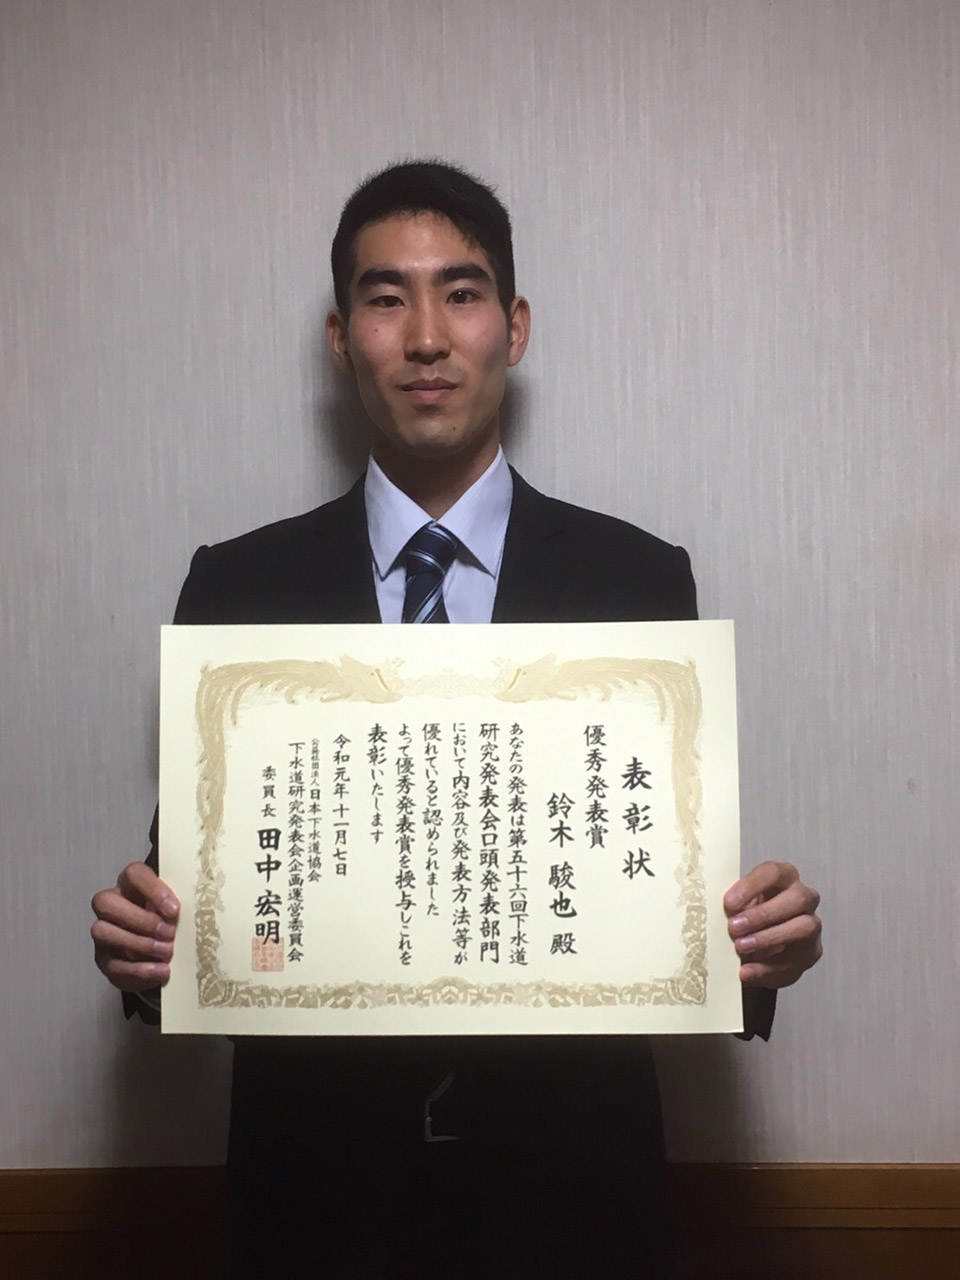 表彰状
優秀発表賞
鈴木 駿也 殿
あなたの発表は第五十六回下水道
研究発表会口頭発表部門
において内容及び発表方法等が
優れていると認められました
よって優秀発表賞を授与しこれを
表彰いたします
令和元年十一月七日
公益社団法人 日本下水道協会
下水道研究発表会企画運営委員会
委員長 田中宏明